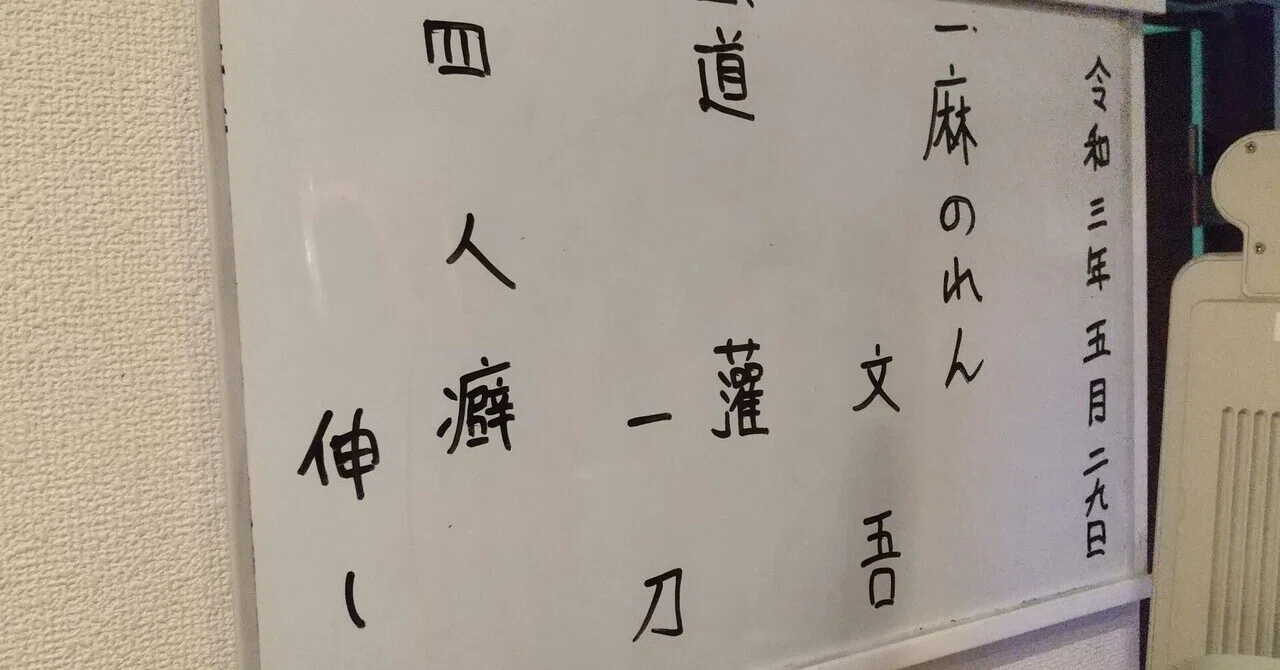 令和三年五月二九日
一、麻のれん
文吾
一、道灌
一刀
四人癖
伸